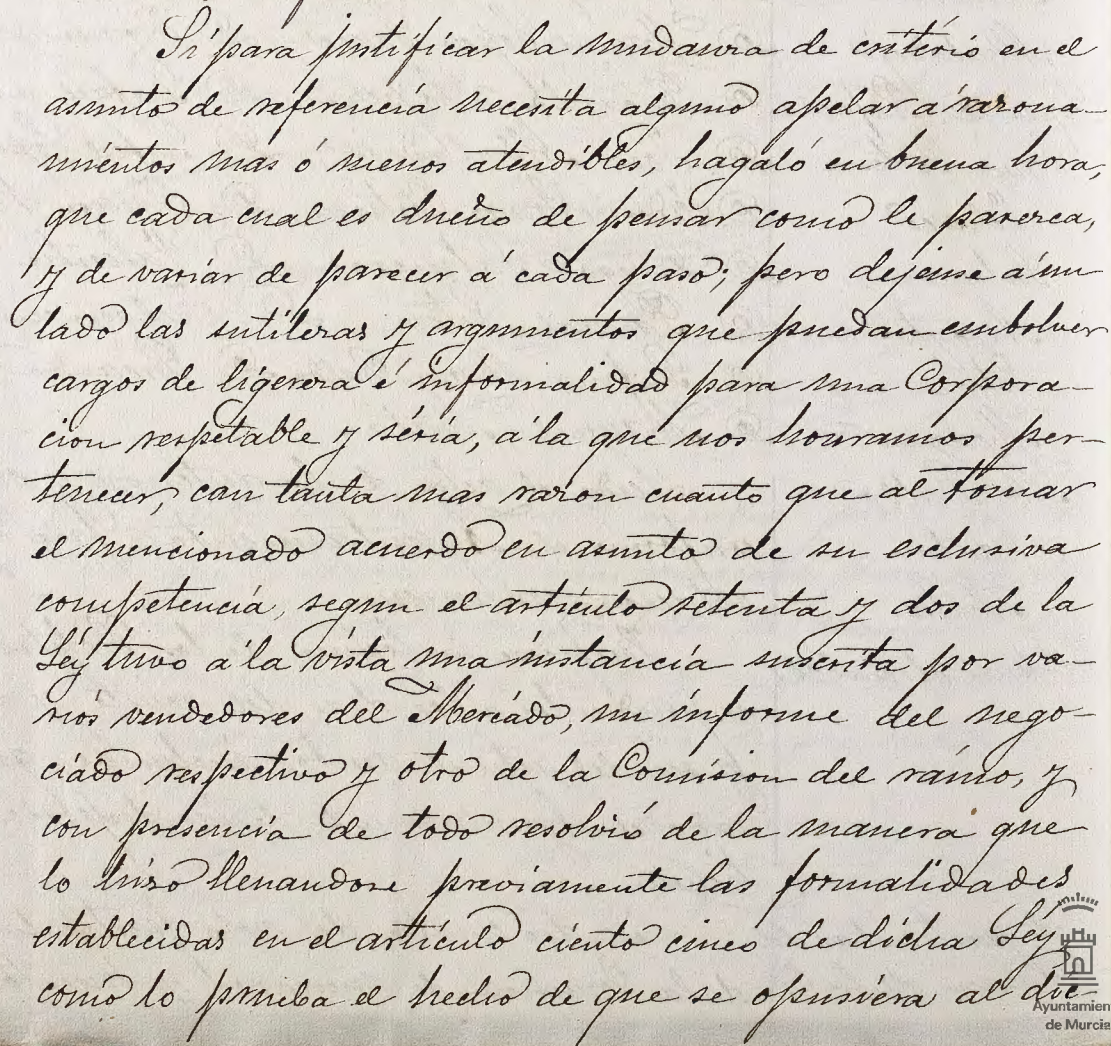 Si para justificar la mudanza de critério en el
asunto de referencia necesita alguno apelar á razona-
mientos mas ó menos atendibles, hagaló en buena hora,
que cada cual es dueño de pensar como le parezca,
y de variar de parecer á cada paso; pero dejense á un
lado las sutilezas y argumentos que puedan embolver
cargos de ligereza é informalidad para una Corpora-
cion respetable y séria, á la que nos honramos per-
tenecer, con tanta mas razon cuanto que al tomar
el mencionado acuerdo en asunto de su esclusiva
competencia, segun el artículo setenta y dos de la
Ley tuvo á la vista una instancia suscrita por va-
rios vendedores del Mercado, un informe del nego-
ciado respectivo y otro de la Comision del ramo, y
con presencia de todo resolvió de la manera que
lo hizo llenandose previamente las formalidades
establecidas en el artículo ciento cinco de dicha Ley,
como lo prueba el hecho de que se opusiera al dic
Ayuntamien
de Murcia